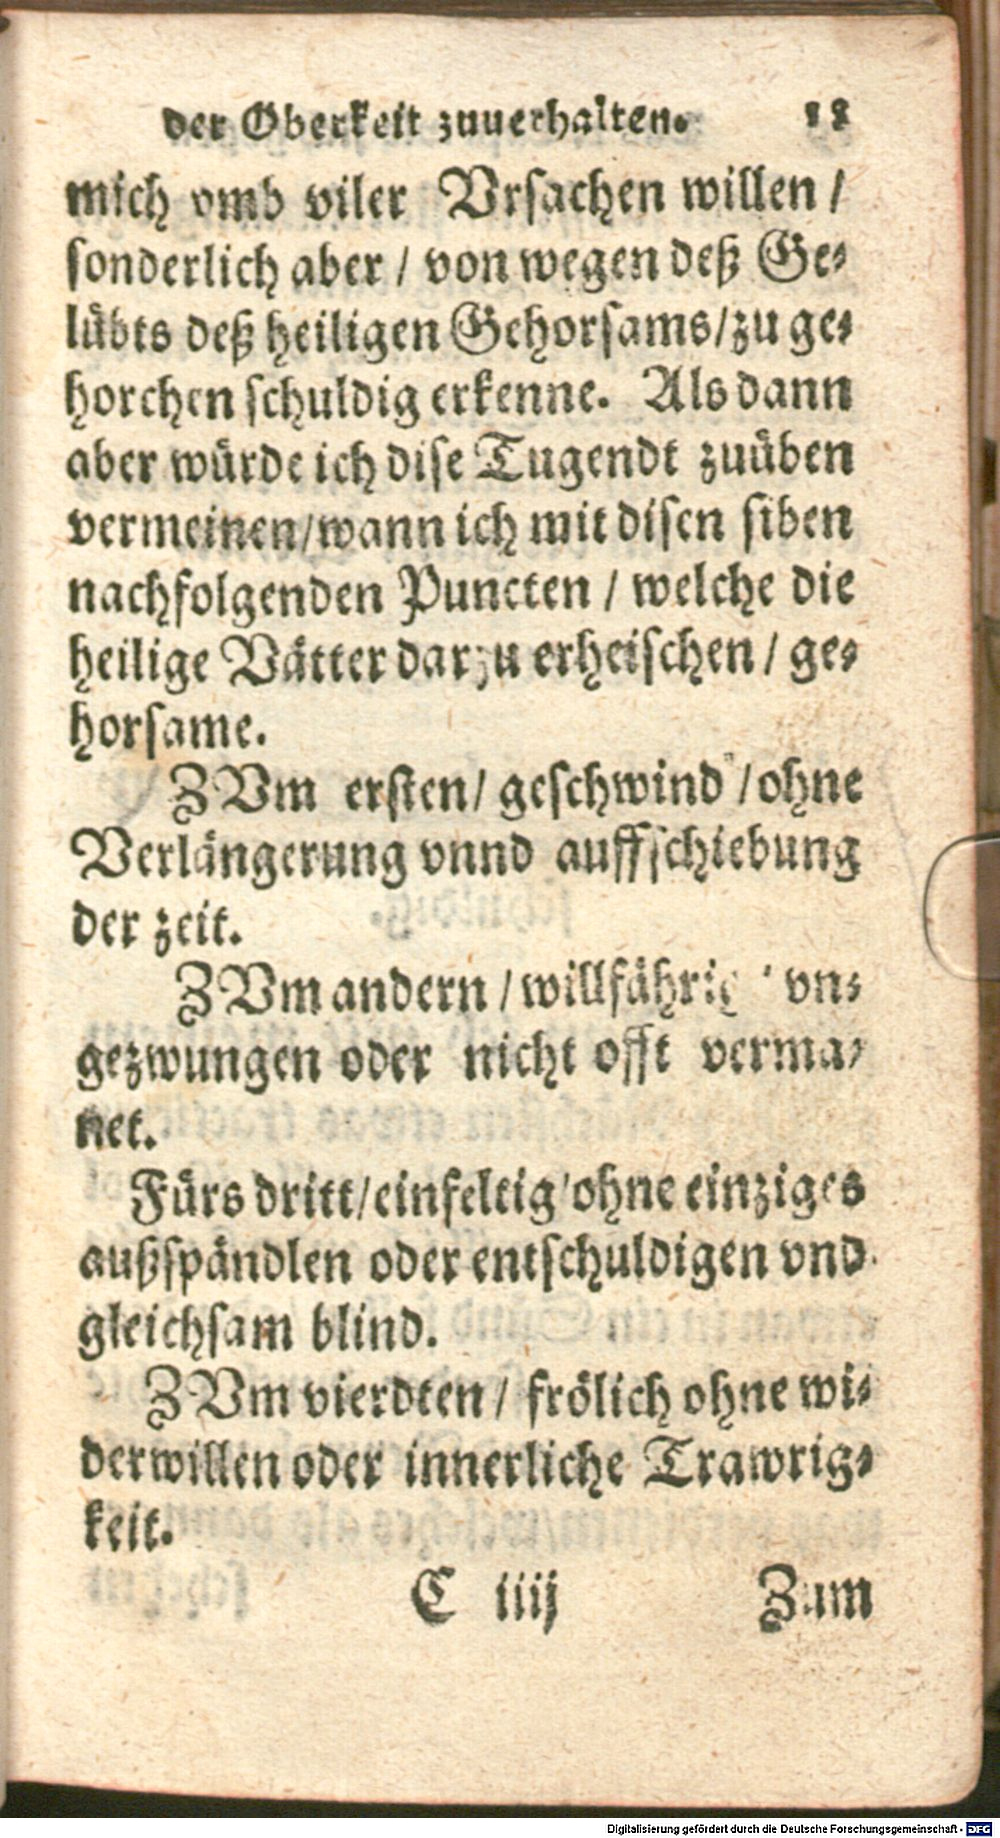 der Oberkeit zuuerhalten. 18
mich vmb viler Vrsachen willen /
sonderlich aber / von wegen deß Ge-
lübts deß heiligen Gehorsams/zu ge-
horchen schuldig erkenne. Als dann
aber würde ich dise Tugendt zuüben
vermeinen/wann ich mit disen siben
nachfolgenden Puncten / welche die
heilige Vätter darzu erheischen / ge-
horsame.
ZVm ersten/ geschwind /ohne
Verlängerung vnnd auffschiebung
der zeit.
ZVm andern / willfährig / vn-
gezwungen oder nicht offt verma-
net.
Fürs dritt/einfeltig/ohne einziges
außspändlen oder entschuldigen vnd
gleichsam blind.
ZVm vierdten / frölich ohne wi-
derwillen oder innerliche Trawrig-
keit.
C iiij Zum
Digitalisierung gefördert durch die Deutsche Forschungsgemeinschaft - DFG